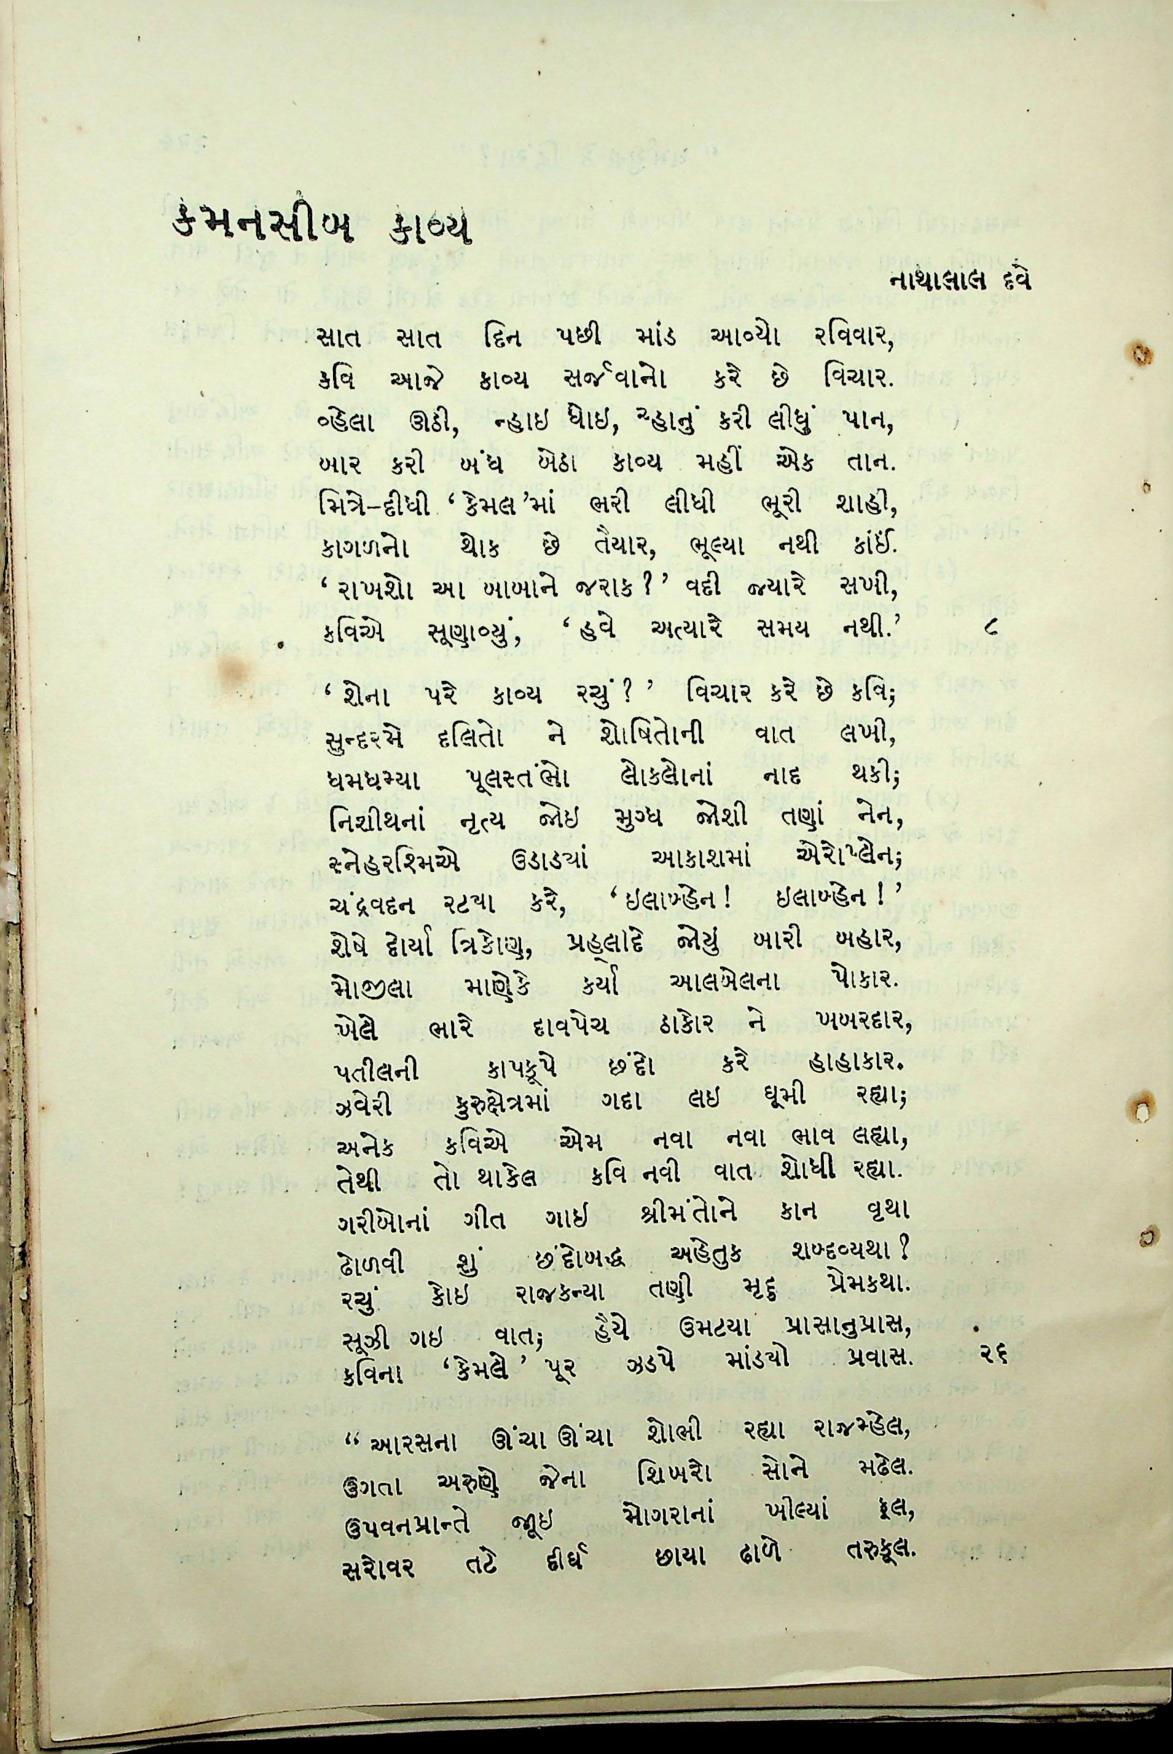 કમનસીબ કાવ્ય
નાથાલાલ દવે
સાત સાત દિન પછી માંડ આવ્યો રવિવાર,
કવિ આજે કાવ્ય સર્જવાનો કરે છે વિચાર.
વ્હેલા ઊઠી, ન્હાઇ ધોઇ, ચ્હાનું કરી લીધું પાન,
બાર કરી બંધ બેઠા કાવ્ય મહીં એક તાન.
મિત્રે-દીધી ‘કેમલ’માં ભરી લીધી ભૂરી શાહી,
કાગળનો થોક છે તૈયાર, ભૂલ્યા નથી કાંઈ.
‘રાખશો આ બાબાને જરાક?’ વદી જ્યારે સખી,
કવિએ સૂણાવ્યું, ‘હવે અત્યારે સમય નથી.’ ૮
‘શેના પરે કાવ્ય રચું?’ વિચાર કરે છે કવિ;
સુન્દરમે દલિતો ને શોષિતોની વાત લખી,
ધમધમ્યા પૂલસ્તંભો લોકલોનાં નાદ થકી;
નિશીથનાં નૃત્ય જોઇ મુગ્ધ જોશી તણાં નેન,
સ્નેહરશ્મિએ ઉડાડ્યાં આકાશમાં એરોપ્લેન;
ચંદ્રવદન રટ્યા કરે, ‘ઇલાબ્હેન! ઇલાબ્હેન!’
શેષે દોર્યા ત્રિકોણ, પ્રહ્લાદે જોયું બારી બહાર,
મોજીલા માણેકે કર્યા આલબેલના પોકાર.
ખેલે ભારે દાવપેચ ઠાકોર ને ખબરદાર,
પતીલની કાપકૂપે છંદો કરે હાહાકાર.
ઝવેરી કુરુક્ષેત્રમાં ગદા લઇ ઘૂમી રહ્યા;
અનેક કવિએ એમ નવા નવા ભાવ લહ્યા,
તેથી તો થાકેલ કવિ નવી વાત શોધી રહ્યા.
ગરીબોનાં ગીત ગાઇ શ્રીમંતોને કાન વૃથા
ઢોળવી શું છંદોબદ્ધ અહેતુક શબ્દવ્યથા?
રચું કોઇ રાજકન્યા તણી મૃદુ પ્રેમકથા.
સૂઝી ગઇ વાત; હૈયે ઉમટ્યા પ્રાસાનુપ્રાસ,
કવિના ‘કેમલે’ પૂર ઝડપે માંડ્યો પ્રવાસ. ૨૬
“આરસના ઊંચા ઊંચા શોભી રહ્યા રાજમ્હેલ,
ઉગતા અરુણે જેના શિખરો સોને મઢેલ.
ઉપવનપ્રાન્તે જૂઇ મોગરાનાં ખીલ્યાં ફૂલ,
સરોવર તટે દીર્ઘ છાયા ઢાળે તરુકૂલ.